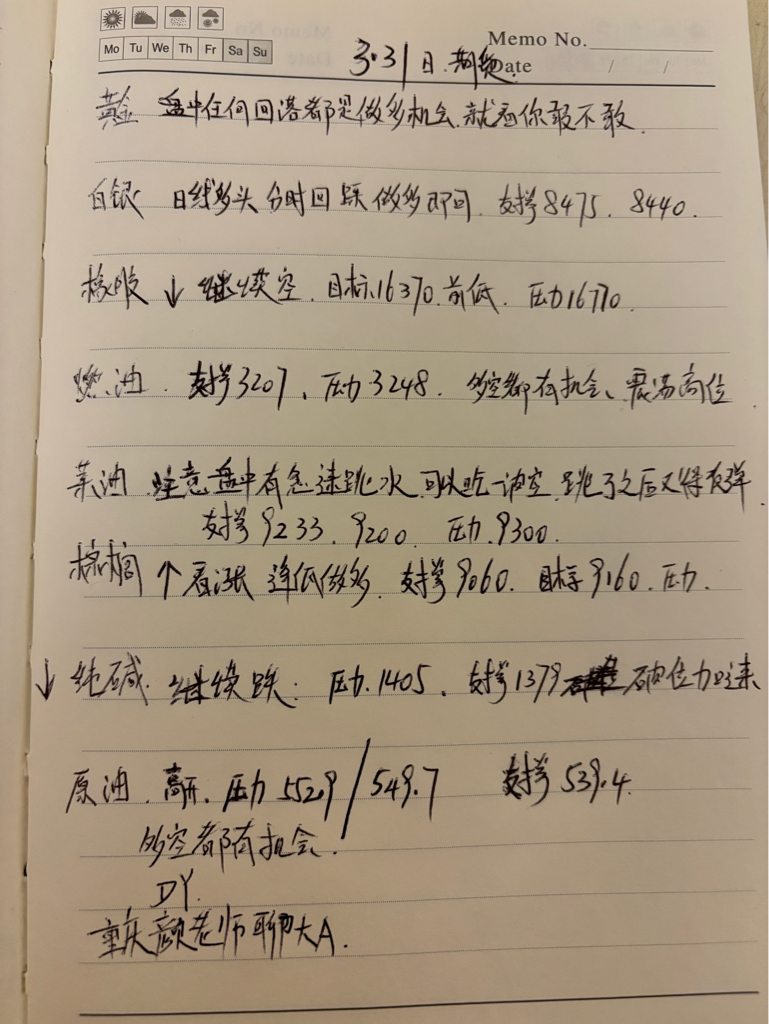 Memo No.
Mo Tu We Th Fr Sa Su
3.31日.期货 Date / /
黄金 盘中任何回落都是做多机会.就看你敢不敢.
白银 日线多头 分时回踩做多即可. 支撑8475. 8440.
橡胶 ↓ 继续空. 目标16370.前低. 压力16770.
燃油. 支撑3207、压力3248. 多空都有机会、震荡高位
菜油 注意盘中有急速跳水 可以吃一波空 跳了之后又得反弹.
支撑9233. 9200. 压力.9300.
棕榈 ↑ 看涨 逢低做多. 支撑9060. 目标9160.压力.
↓ 纯碱. 继续跌: 压力.1405. 支撑1379 破位加速
原油. 高开. 压力552.9/549.7 支撑539.4.
多空都有机会.
DY.
重庆颜老师聊大A.